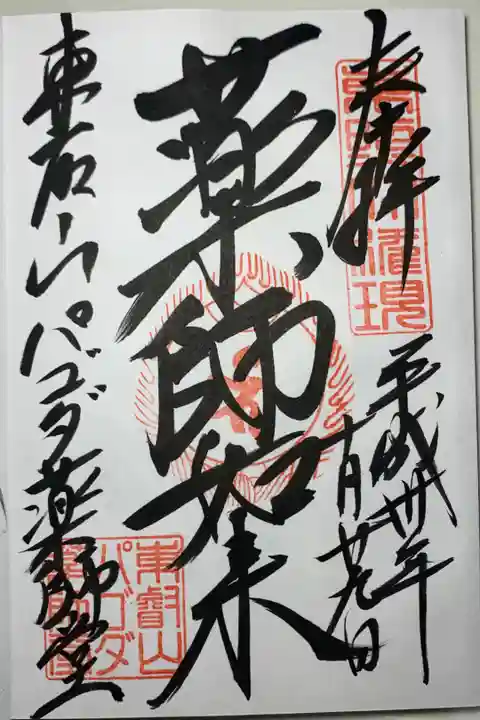 奉拝
平成卅年
十月廿九日
薬師如来
東叡山パゴダ薬師堂
東叡山
パゴダ
薬師堂